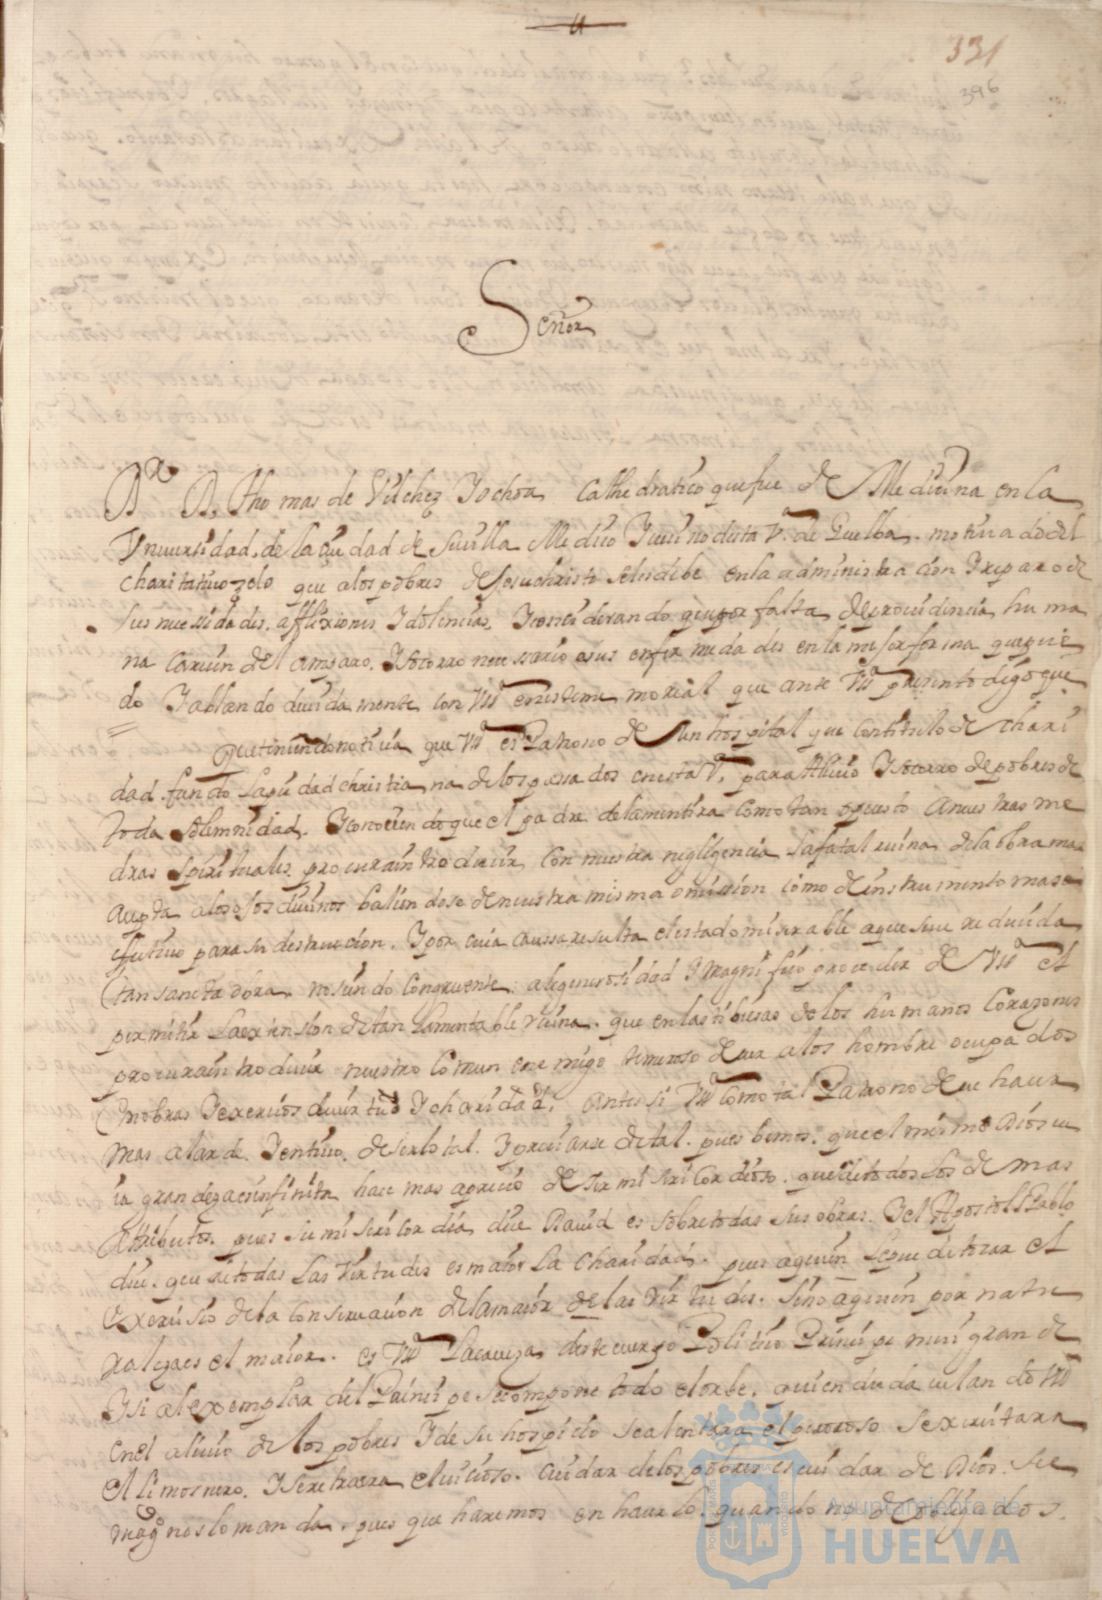 u
331
396
Señor
Br. D. Thomas de Vilchez Y ochoa, Cathedratico que fue de Mediçina en la
Vniuersidad, de la çiudad de seuilla Medico Y ueçino desta Va. de Guelba. motiuado del
charitatiuo zelo que a los pobres de Jesuchristo se les debe en la administraçion Y reparo de
sus neçessidades, afflixiones Y dolençias, Y considerando que por falta de prouidençia huma
na careçen del amparo, Y socorro neçessario a sus enfermedades en la mejor forma que pue
do Y ablando deuidamente con VSa en este memorial que ante VSa presento digo que
Que tiniendo notiçia que VSa es Patrono de un hospital que con titulo de chari
dad fundo la piedad christiana de los passados en esta Va, para Aliuio Y socorro de pobres de
toda solemnidad. Y conoçiendo que el padre de la mentira como tan opuesto a nuestras me
dras spirituales, procura introduçir con nuestra negligençia la fatal ruina de la obra mas
açepta a los ojos diuinos baliendose de nuestra misma omission como de instrumento mas e
fectiuo para su destruccion. Y por cuia caussa resulta el estado miserable a que se ve reduçida
tan sancta obra, no siendo congruente a la generosidad Y magnifico proceder de VSa el
permitir la extension de tan lamentable ruina. que en las tibiesas de los humanos corazones
procura introduçir nuestro comun enemigo temeroso de ver a los hombre ocupados
en obras Y exerçiçios de uirtud Y charidad, antes si VSa como tal Patrono deue haçer
mas alarde Y de serlo tal. Y preciarse de tal. pues bemos. que el mismo Dios cu
ia grandeza es infinita haçe mas apreçio de ser misericordioso. que de todos los demas
Attributos. pues su misericordia diçe Dauid es sobre todas sus obras. Y el Apostol S. Pablo
diçe. que de todas las Virtudes es maior la charidad. pues a quien le puede tocar el
exerçiçio de la conseruaçion de la maior de las Virtudes. sino a quien por natu
raleza es el maior. es VSa la caueza deste cuerpo Politico Prinçipe mui grande
Y si al exemplar del Prinçipe se compone todo el orbe, quien duda uelando VSa
en el aliuio de los pobres Y de su hospiçio se alentara el pereroso se exerçitara
el limosnero. Y se retraera el uiçioso. cuidar de los pobres es cuidar de Dios. su
magd nos lo manda. pues que haremos en haçerlo. quando no de obligados.
Ayuntamiento de
HUELVA